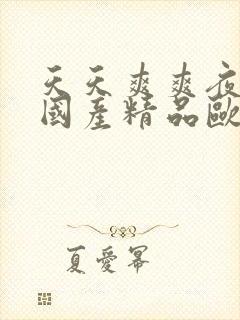 天天爽爽夜
國產精品歐
夏愛幂